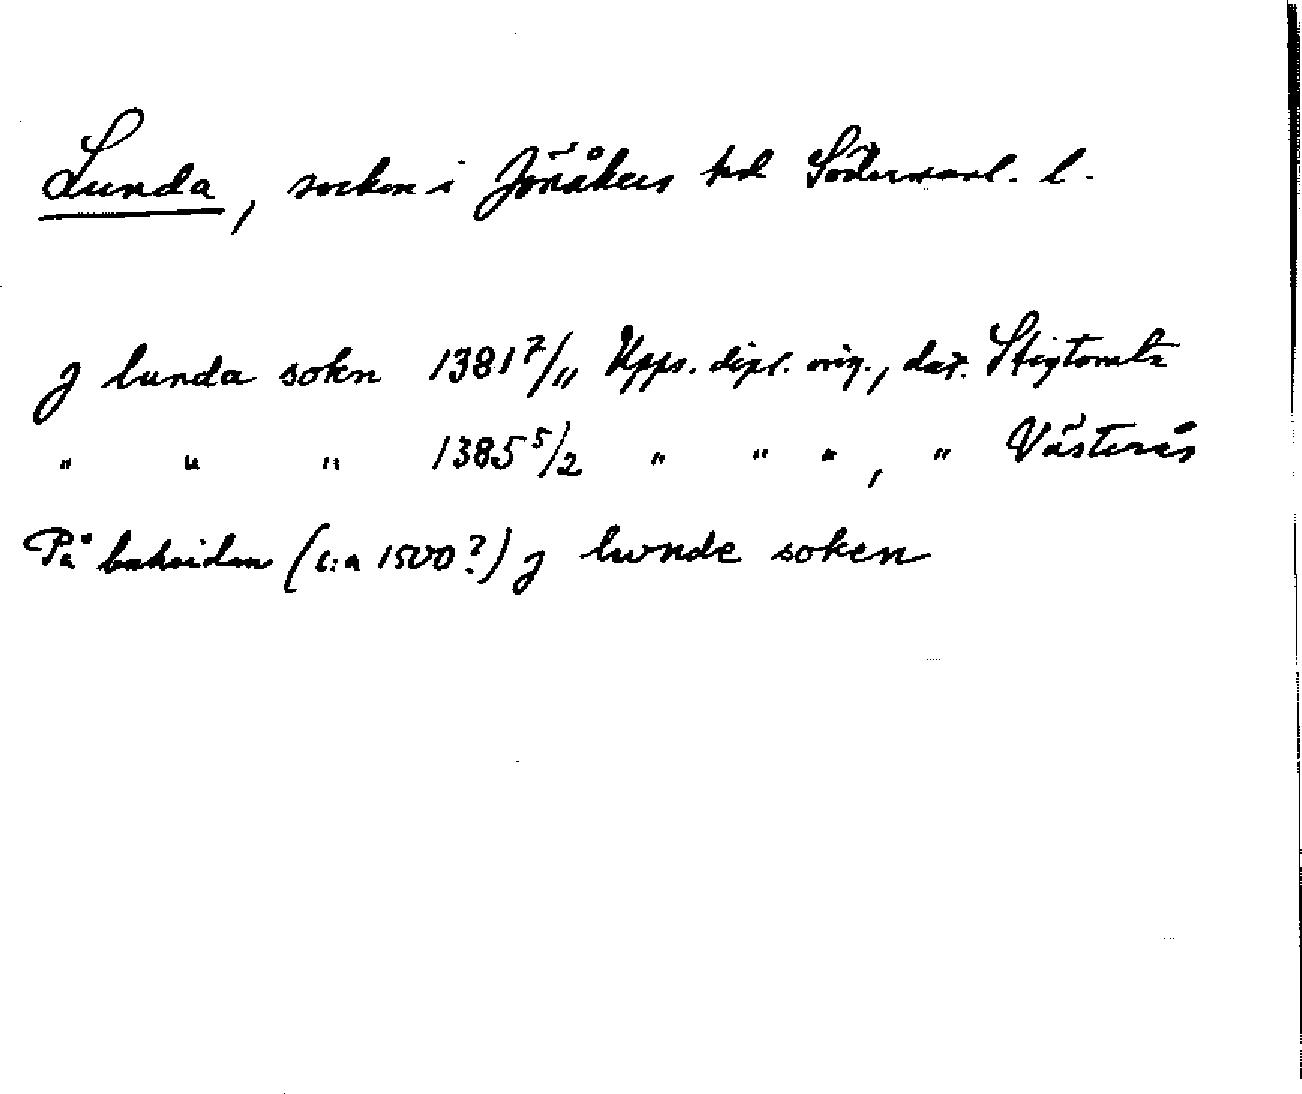 Lunda, socken i Jönåkers hd Södermanl. l.
J lunda sokn 1381 7/11 Upps. dipl. orig., dat. Stigtomta
" " " 1385 5/2 " " " , " Västerås
På baksidan (c:a 1500?) J lwnde soken